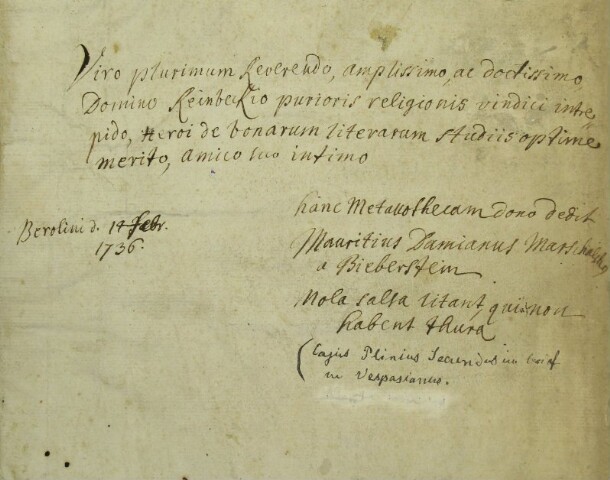 Viro plurimum Reverendo, amplissimo, ac doctissimo
Domino Reinbeckio purioris religionis vindici intre,
pido, Heroi de bonarum literarum studiis optime
merito, amico suo intimo
Berolini d. 14 Febr.
1736.
hanc Metallothecam dono dedit
Mauritius Damianus Marschalck
a Bieberstein
Mola salsa litant, qui non
habent thura
(Cajus Plinius Secundus im brief
Vespasianus.